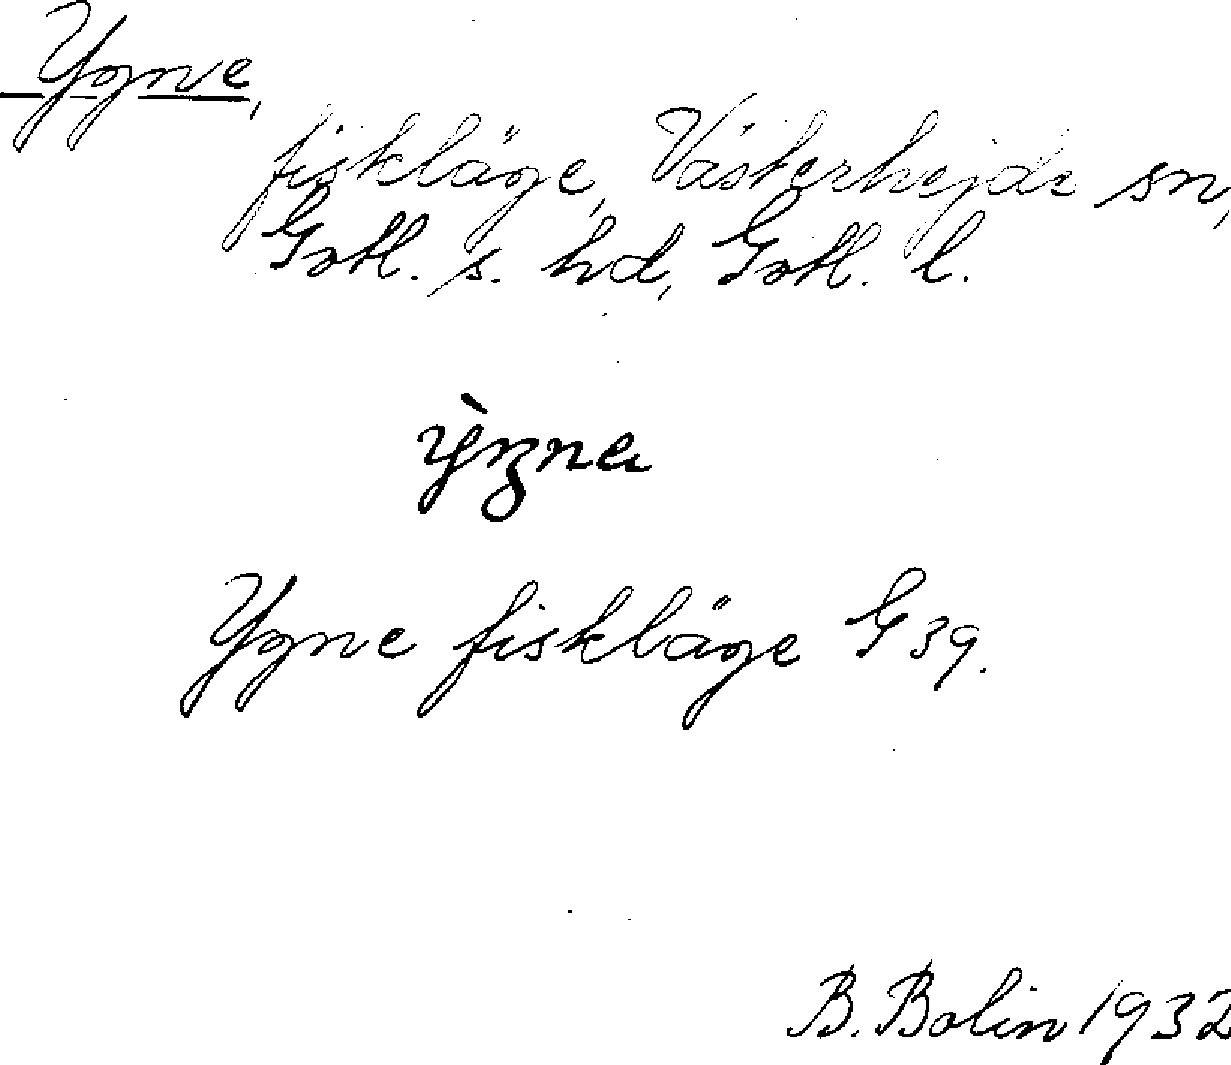 Ygne,
fiskläge, Västerhejde sn,
Gotl. s. hd, Gotl. l.
Ygne fiskläge G 39.
B. Bolin 1932